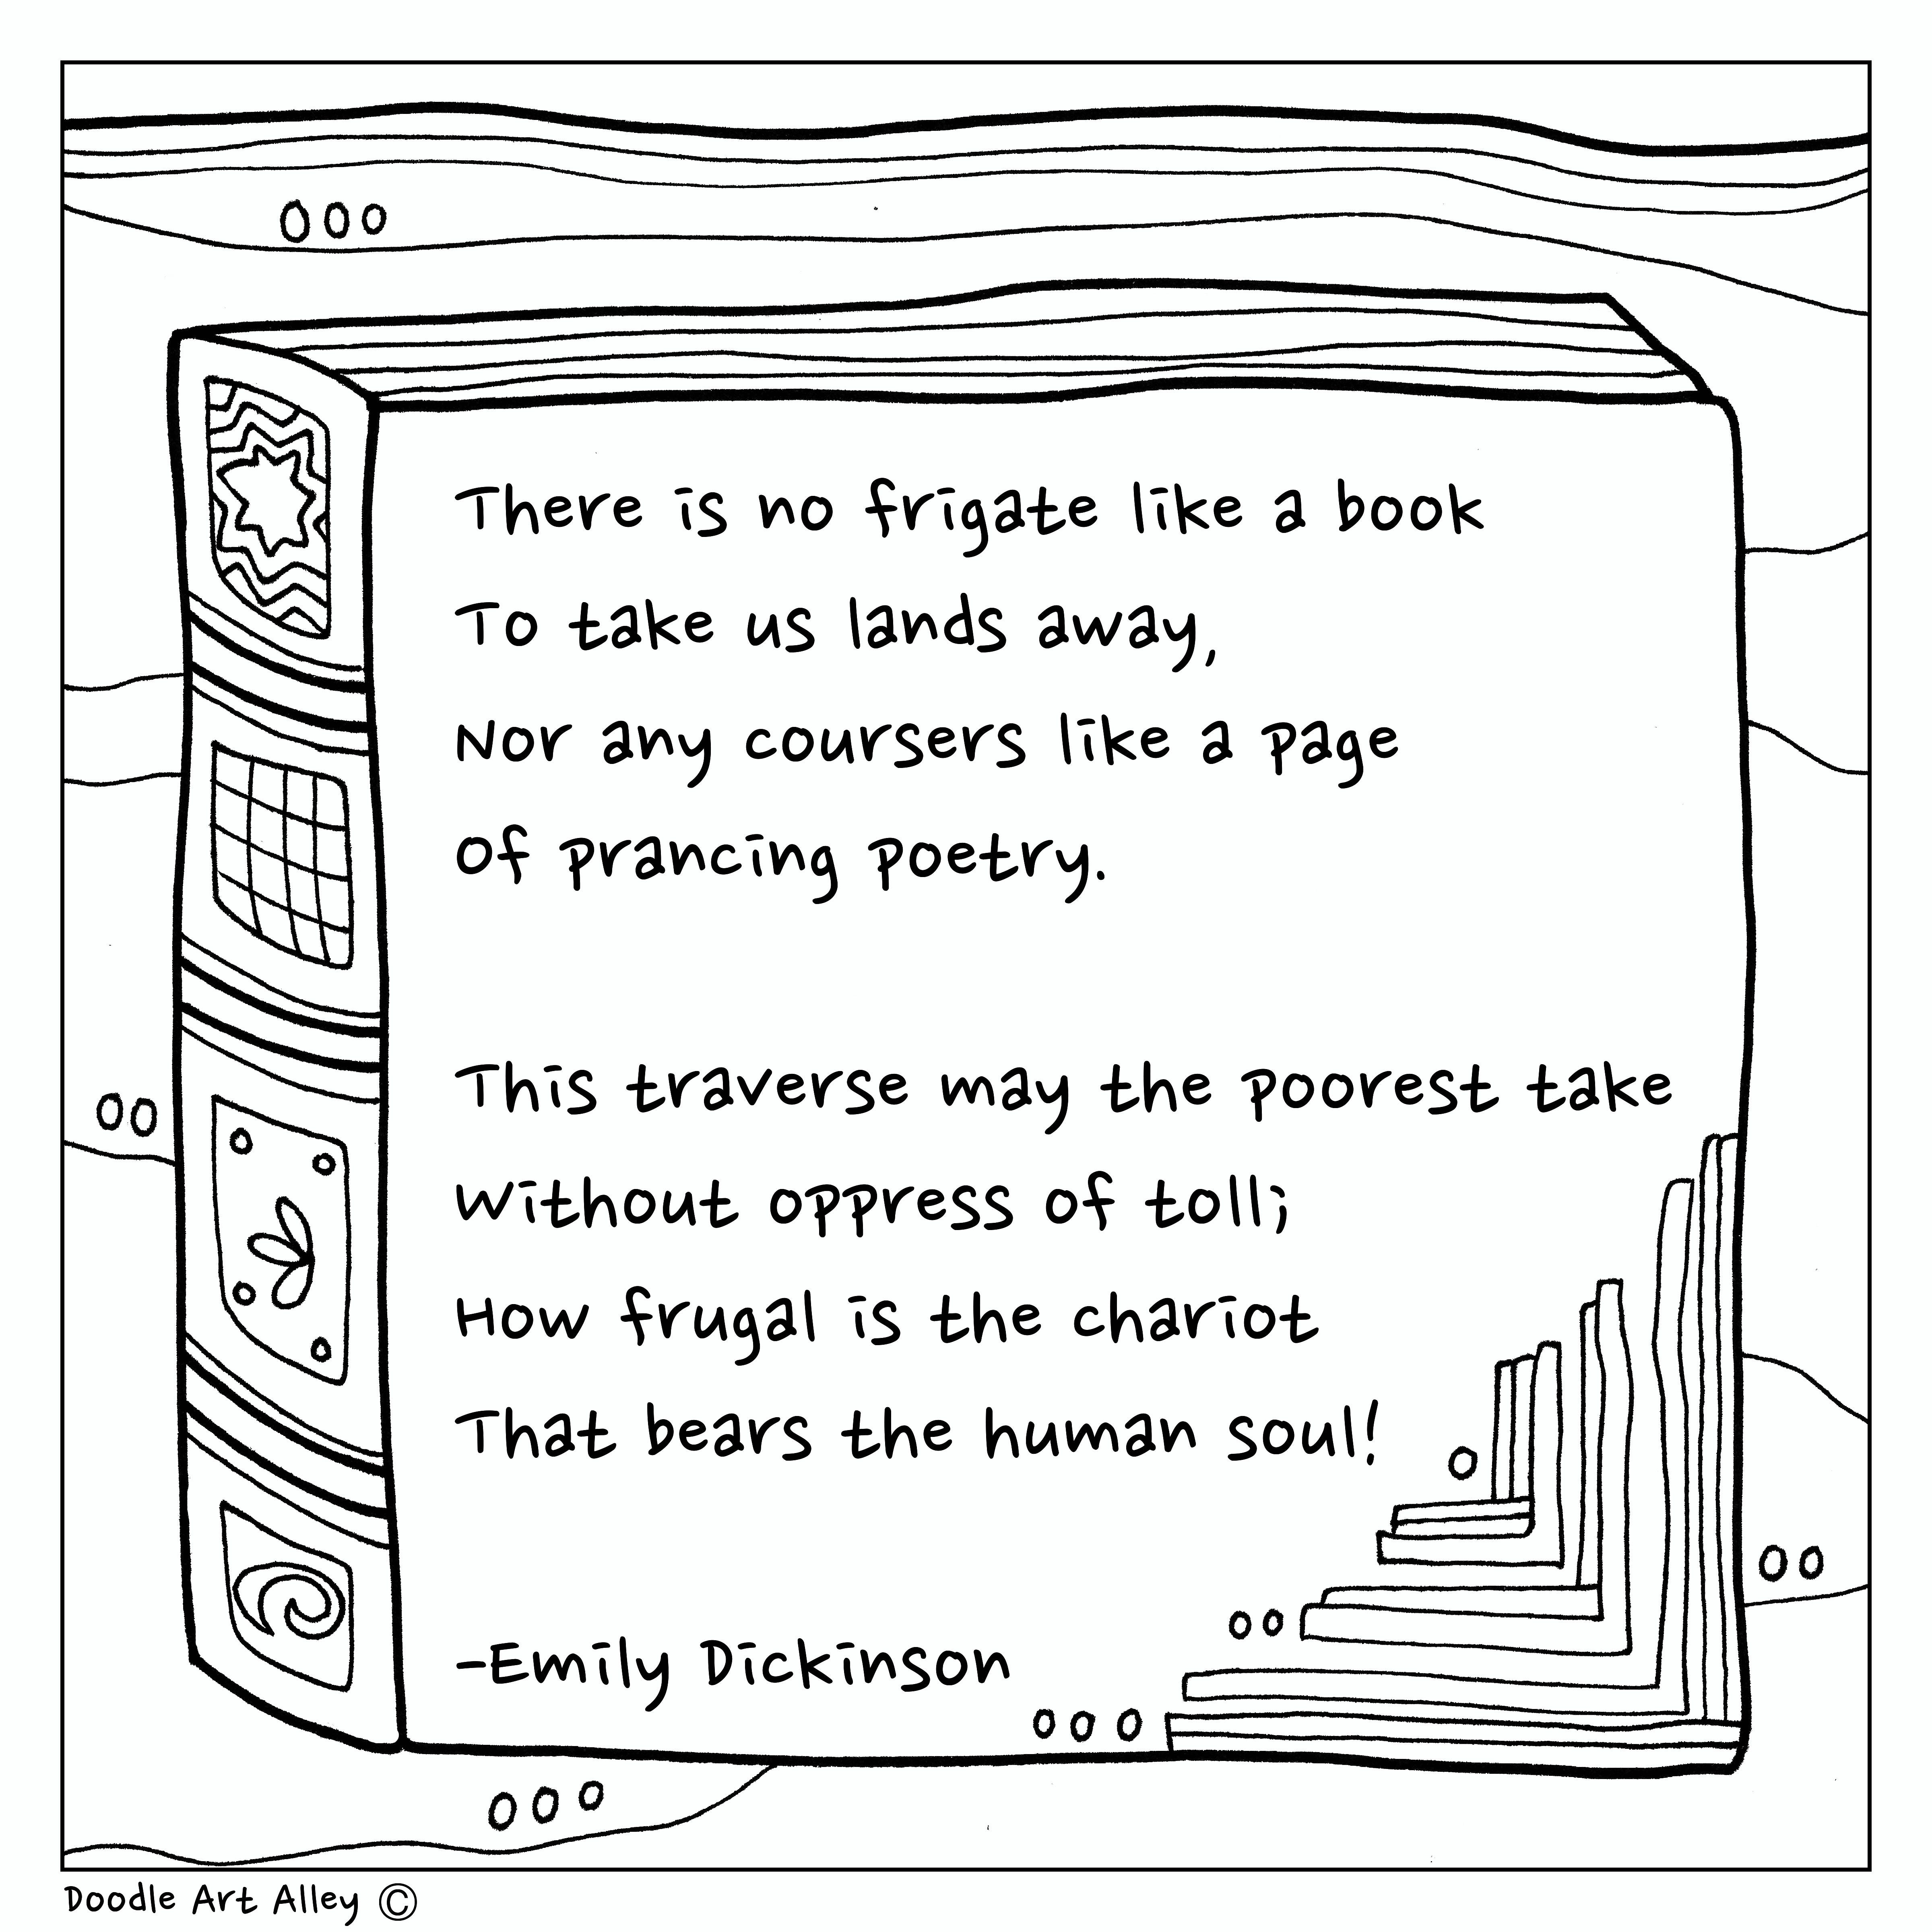 There is no frigate like a book
To take us lands away,
Nor any coursers like a page
Of prancing poetry.
This traverse may the poorest take
Without oppress of toll;
How frugal is the chariot
That bears the human soul!
-Emily Dickinson
Doodle Art Alley ©